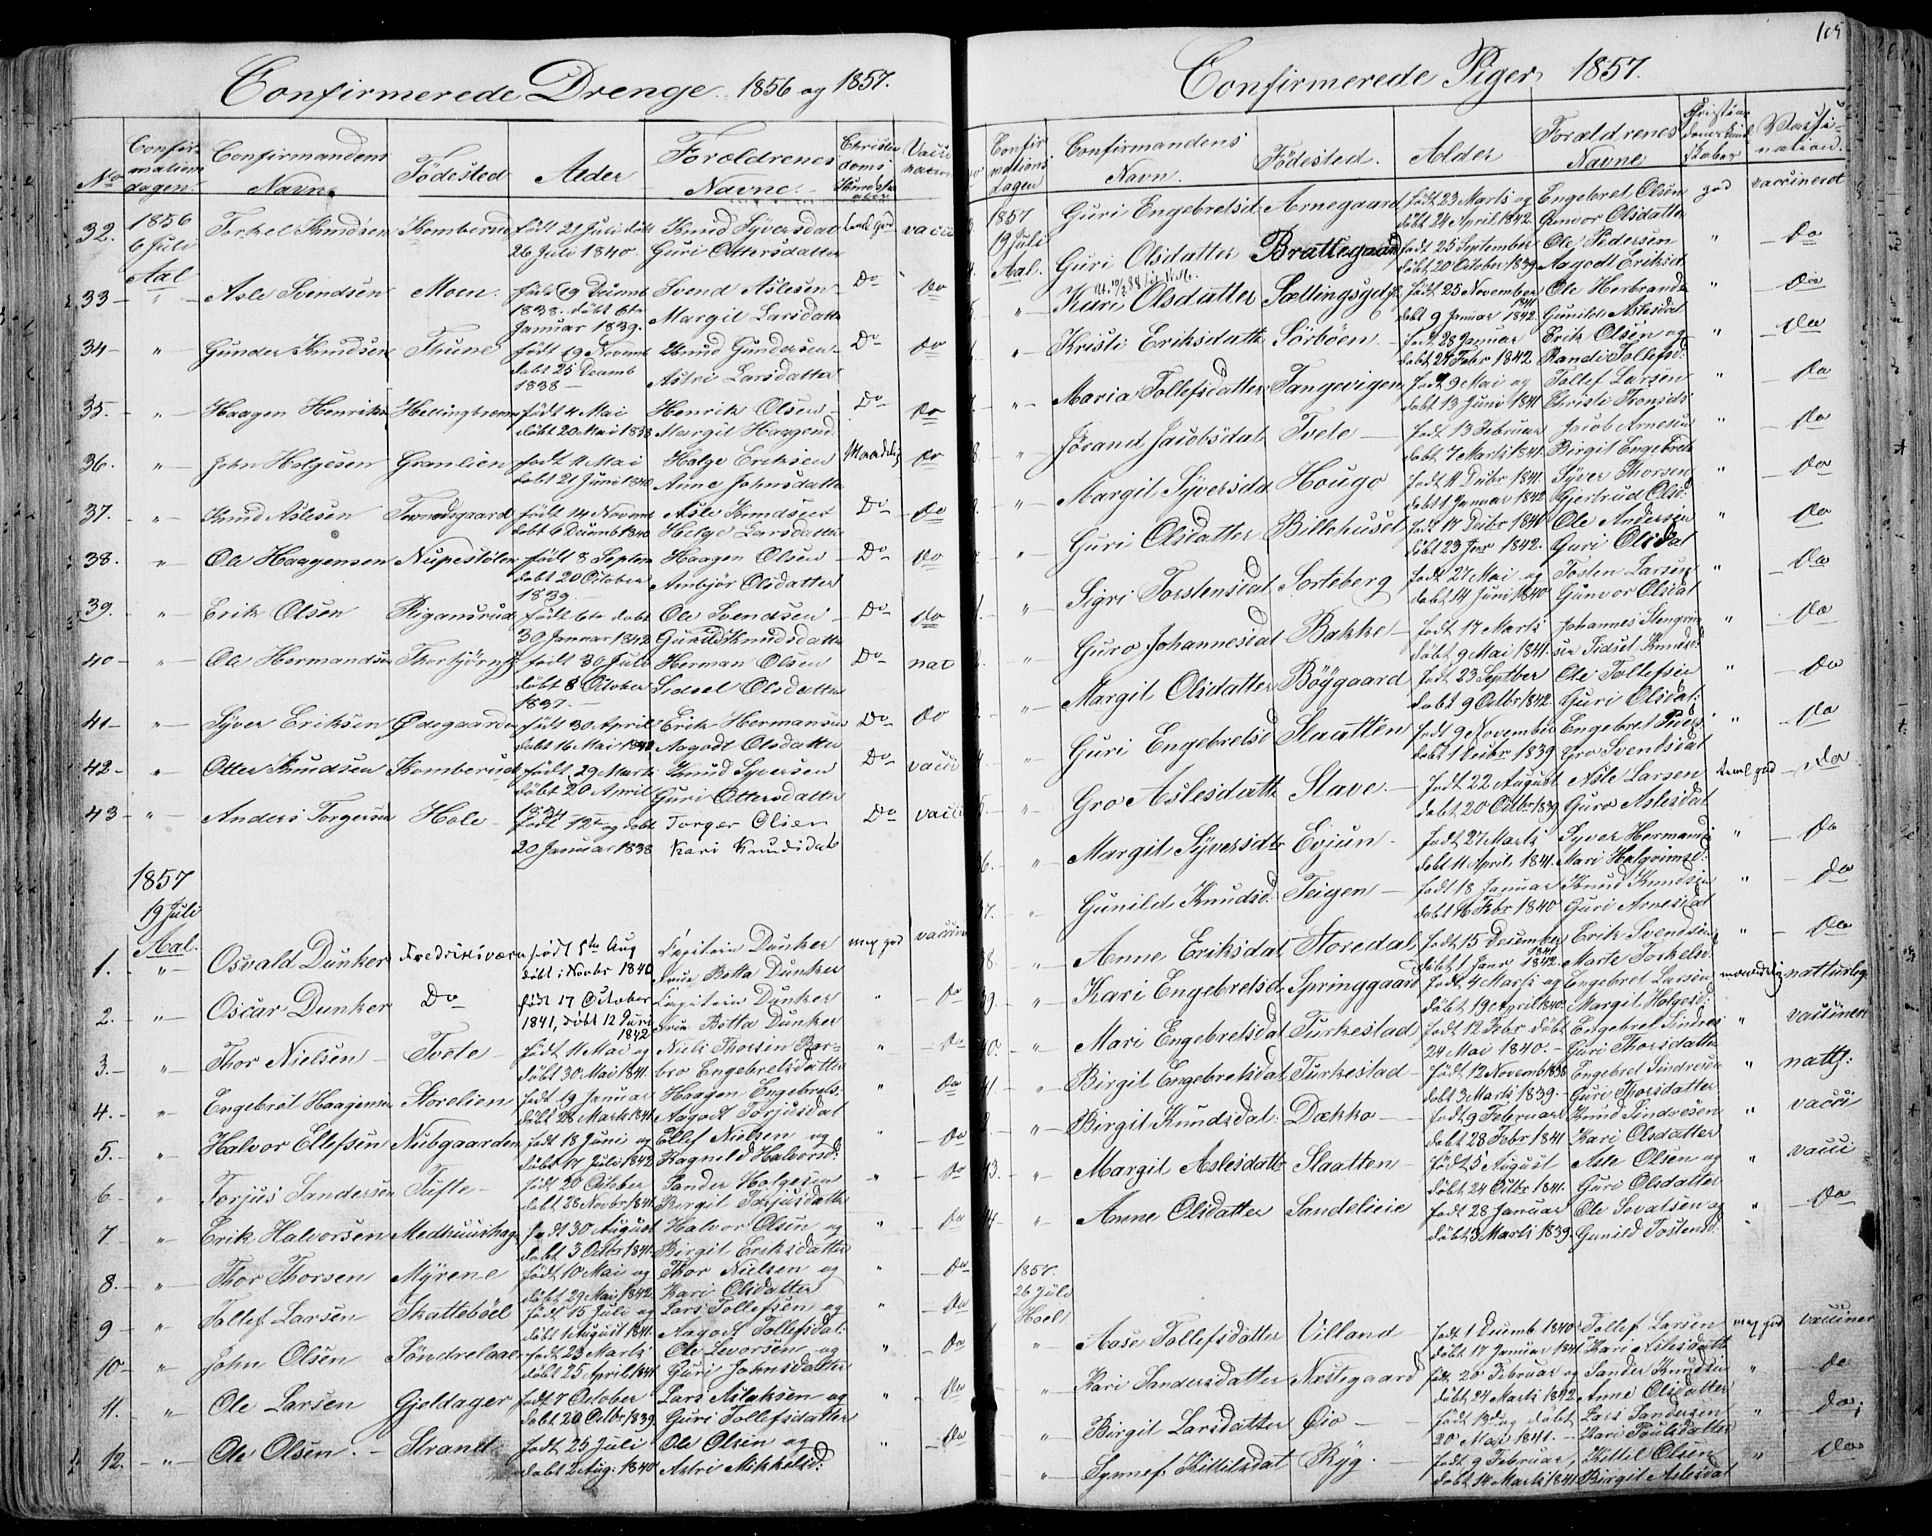 Confirmerede Drenge 1856 og 1857.
No Confirmationsdagen Confirmandens Navn Födested Alder Forældrenes Navne Christendoms Kundskaber Vaccination
1856
6 Juli
Aal
32. Torkel Knudsen Komberud född 21 Juli döbt 26 Juli 1840 Knud Syversdat Guri Ottersdatter vacci
33 " Asle Svendsen Moen. född 19 Decemb 1838. döbt 6te Januar 1839. Svend Aslesen Margit Larsdatter Do Do
34 " Gunder Knudsen Thune född 19 Novemb döbt 25 Decemb 1838 Knud Gundersen Astri Larsdatter Do Do
35. " Haagen Henriks född 4 Mai döbt 20 Mai 1838 Henrik Olsen Margit Haagend Do Do
36. " John Helgesen Grønlien född 11 Mai döbt 21 Juni 1840 Helge Eriksen Anne Johnsdatter Maadelig Do
37. " Knud Aslesen Tormodsgaard född 14 Novemb döbt 6 Decemb 1840 Asle Knudsen Helge Larsdatter Do Do
38. " Ole Haagensen Nupestölen född 8 Septem döbt 20 October 1839. Haagen Olsen Ambjör Olsdatter Do Do
39. " Erik Olsen Rigansrud född 6te döbt 30 Januar 1842 Ole Svendsen Gunild Knudsdatter Do Do
40 " Ole Hermandsen Thorbjörns född 30 Juli döbt 8 October 1837. Herman Olsen Sidsel Olsdatter Do nat
41 " Syver Eriksen Ödegaarden född 30 April döbt 16 Mai 1842 Erik Hermansen Aagodt Olsdatter Do Do
42 " Otter Knudsen Komberud född 29 Marts döbt 20 April 1834 Knud Syversen Guri Ottersdatter Do vacci
43 " Anders Torgersen Hole född 12te og döbt 20 Januar 1838 Torger Olsen Kari Knudsdat Do vacci
1857
19 Juli
Aal.
1. " Osvald Dunker Fredriksværn född 8de Aug döbt i Novbr 1840 Capitein Dunker Frue Botta Dunker meg god vaccin
2. " Oscar Dunker Do född 17 October 1841, döbt 12 Juni 1842 Capitein Dunker Frue Botta Dunker " Do
3. " Thor Nielsen Tvete född 11 Mai og döbt 30 Mai 1841. Niels Thorsen Barbro Engebretsdatter " Do
4. " Engebret Haagensen Storelien född 19 Januar döbt 28 Marts 1841 Haagen Engebrets. Aagodt Torjusdat " Do
5. " Halvor Ellefsen Nubgaarden född 18 Juni og döbt 17 Juli 1842 Ellef Nielsen og Ragnild Halvorsd: " Do
6 " Torjus Sandersen Tufte född 20 October döbt 28 Novbr 1841. Sander Helgesen Birgit Torjusdatter " Do
7 " Erik Halvorsen Medhuushage född 30 August döbt 3 Octbr 1841. Halvor Olsen og Birgit Eriksdatter " Do
8 " Thor Thorsen Myrene född 10 Mai og döbt 29 Mai 1842. Thor Nielsen og Kari Olsdatter " Do
9 " Tollef Larsen Skatteböel född 15 Juli og döbt 1 August 1841. Lars Tollefsen og Aagodt Tollefsdat: " Do
10 " John Olsen Söndrelaae född 23 Marts döbt 25 April 1841 Ole Levorsen og Guri Johnsdatter " Do
11. " Ole Larsen Gjeldager född 7 October döbt 20 Octbr 1839 Lars Aslaksen og Guri Tollefsdatter " Do
12. " Ole Olsen. Strand född 25 Juli döbt 2 Aug: 1840 Ole Olsen og Astri Mikkelsd: " Do
105
Confirmerede Piger 1857.
Confirmationsdagen Confirmandens Navn. Födested. Alder Forældrenes Navne Christendomskundskaber Vaccination.
1857
19 Juli
Aal.
Guri Engebretsd Arnegaard född 23 Marts og döbt 24 April 1842. Engebret Olsen Gunvor Olsdatter god vaccineret
Guri Olsdatter Brattegaard född 25 September döbt 20 October 1839 Ole Pedersen Aagodt Eriksd " Do
" Kari Olsdatter född 25 November 1841 döbt 9 Januar 1842. Ole Herbrands Gunild Aslesdat " Do
" Kristi Eriksdatt Sörböen född 28 Januar döbt 24 Febr 1842 Erik Olsen og Randi Tollefsd: " Do
" Maria Tollefsdatter Tangevigen född 9 Mai og döbt 13 Juni 1841 Tollef Larsen " Do
8 " Jörand Jacobsdat Tvete född 13 Februar döbt 7 Marts 1841. Jacob Arnesen Birgit Engebrets " Do
" Margit Syversda Hougo född 11 Decbr 1841. döbt 1 Januar 1842 Syver Thorsen Gjertrud Olsd. " Do
" Guri Olsdatter Billehuset född 17 Decbr 1841 döbt 23 Jnr 1842. Ole Andersen Guri Olsdat " Do
" Sigri Torstensdat Sorteberg född 27 Mai og döbt 14 Juni 1840 Tosten Larsen Gunvor Olsdat " Do
" Guro Johannesdat Bakke född 17 Marts döbt 9 Mai 1841. Johannes Stengrimsen Sidsel Knuds " Do
Margit Olsdatter Böygaard född 23 Septber döbt 9 Octbr 1842. Ole Tollefsen Guri Olsdat: " Do
" Guri Engebretsd Slaatten född 9 November döbt 1 Decbr 1839 Engebret Gro Svendsdat " Do
" Gro Aslesdatt Slave. född 22 August döbt 20 Octbr 1839 Asle Larsen Guro Aslesdat Do
" Margit Syversdtr Evjun född 27 Marts döbt 11 April 1841. Syver Hermands Mari Halgrimsd: " Do
" Gunild Knudsd. Teigen född 18 Januar döbt 16 Febr 1840 Knud Knudsen Guri Arnesdat " Do
" Anne Eriksdat Storedal född 15 December 1841 döbt 1 Janr 1842. Erik Svendsen Marte Torkelsd: " Do
" Kari Engebretsd Springgaard född 4 Marts og döbt 19 April 1840. Engebret Larsen Margit Helgesd: maadelig natturlig
" Mari Engebretsdat Turkestad född 12 Febr döbt 24 Mai 1840. Engebret Sindres Guri Thorsdatter " vaccinen
41. " Birgit Engebretsdat Turkestad född 12 Novemb 1838 döbt 3 Marts 1839. Engebret Sindresen Guri Thorsdatter " nattl:
" Birgit Knudsdat: Dækko född 9 Februar döbt 28 Febr 1841 Knud Sindresen Kari Olsdatter " vacci
43. " Margit Aslesdatt Slaatten född 5 August döbt 24 Octbr 1841. Asle Olsen og Guri Olsdatter " vacci
" Anne Olsdatter Sandeleie född 28 Januar döbt 3 Marts 1839. Ole Sevatsen og Gunild Tostensd. " Do
1857.
26 Juli
Hoel.
" Aase Tollefsdatter Villand född 1 Decemb 1840 döbt 17 Januar 1841 Tollef Larsen Kari Aslesdatt meg god vacciner
" Kari Sandersdatter Nestegaard född 20 Februar og döbt 24 Marts 1842. Sander Knudsen Anne Olsdatter " Do
" Birgit Larsdatter Öio född 13de og döbt 20 Mai 1841. Lars Sandersen Kari Paulsdatter " Do;
" Synnef Kittilsdat Ryg. född 9 Februar, döbt 14 Marts 1841 Kittil Olsen Birgit Aslesdat " Do